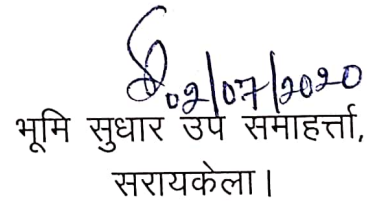 02/07/2020
भूमि सुधार उप समाहर्त्ता,
सरायकेला।